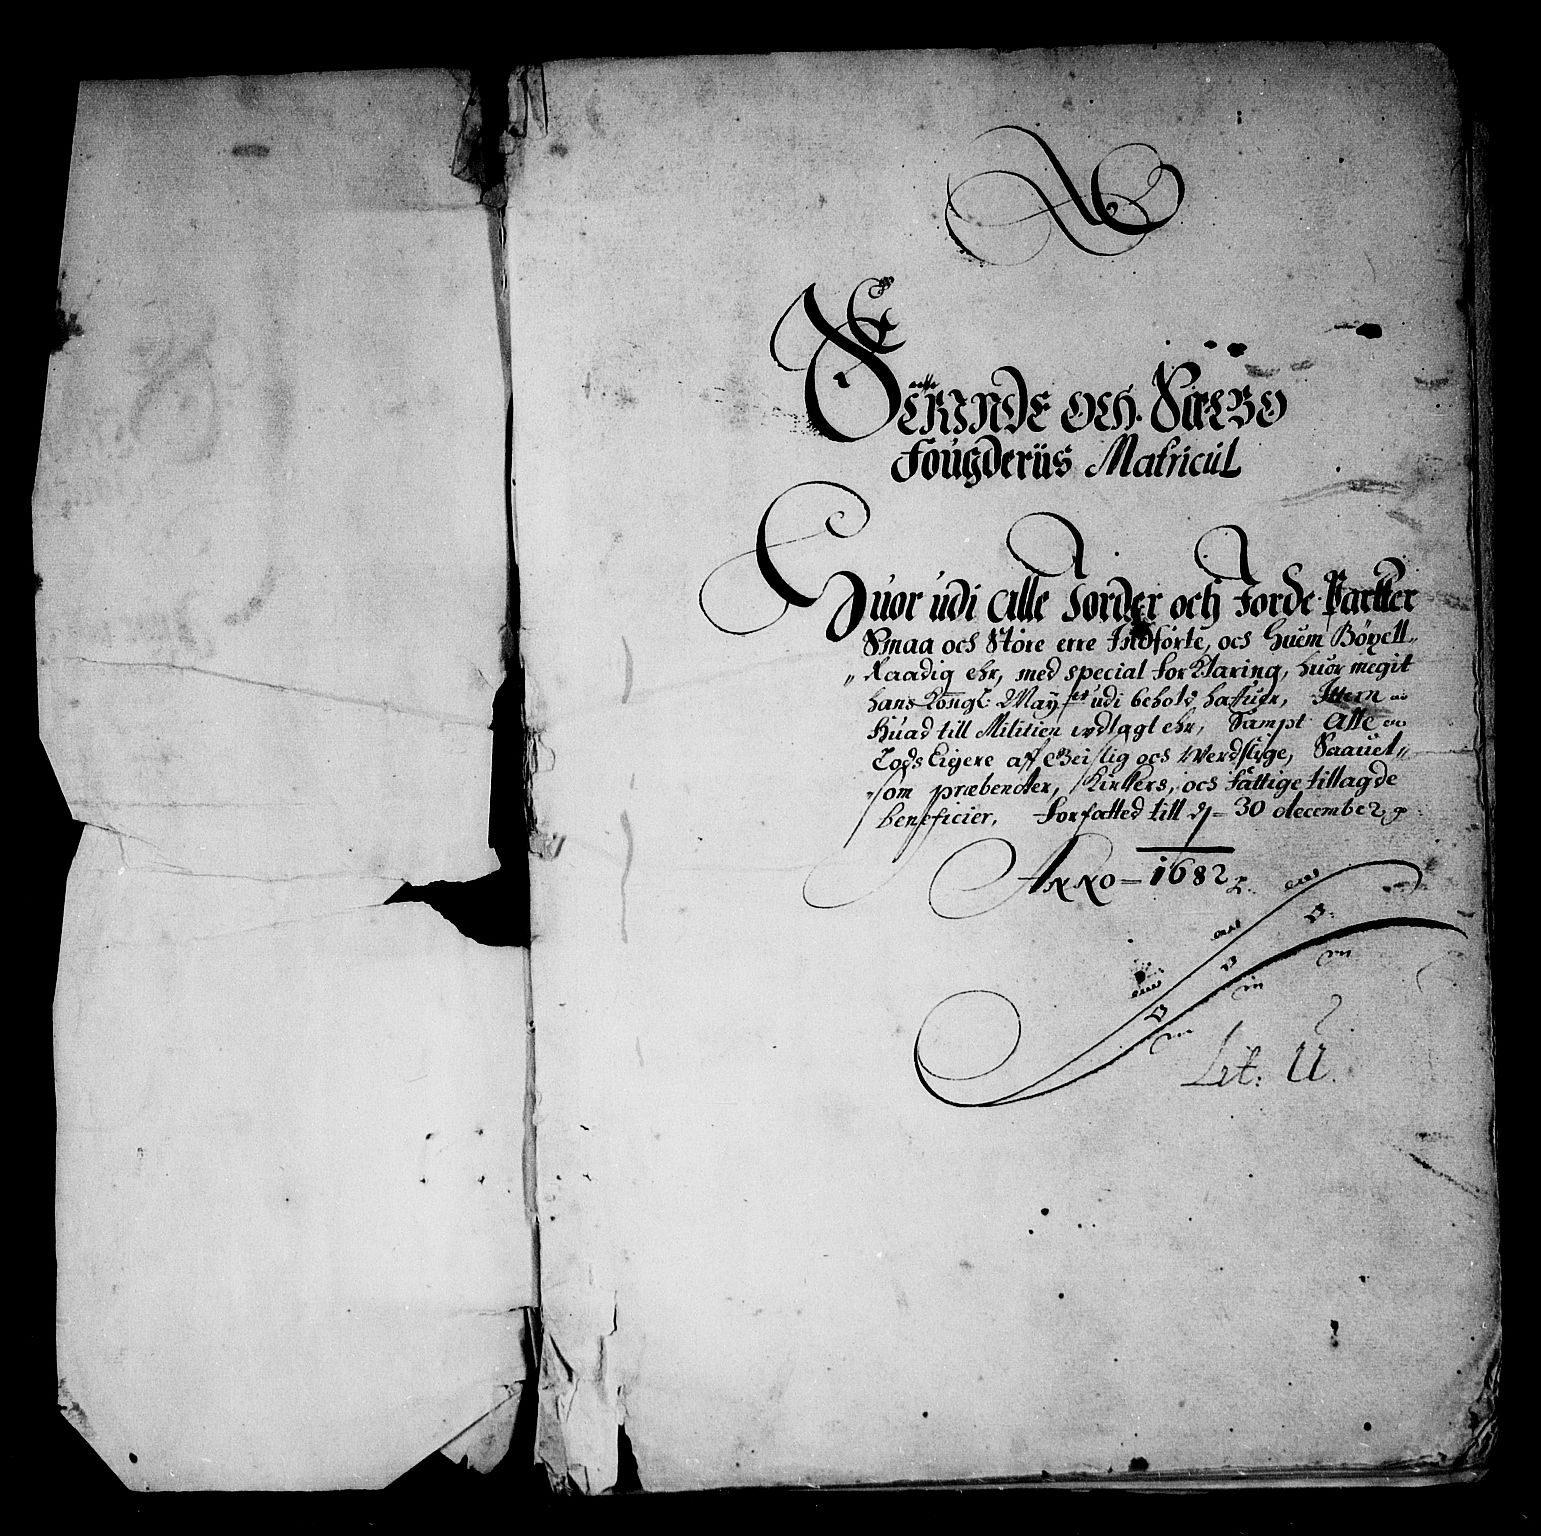 Strinde och Sælbo
Fougderiis Matricul
Huor udi Alle Jorder och Jorde Partter
Smaa och Störe erre Indförte, och huem Böxell
Raadig ehr, med special forklaring, huor megit
hans Kongl: Mayst udi behold hafuer, Ittem
huad till Militien udlagt ehr, Sampt Alle
Gods Eigere aff Geistlig och Werdslige, Saauel
som præbender, Kirkers, och fattige tillagde
beneficier, forfatted till d 30 december
Anno 1682
Lit: U